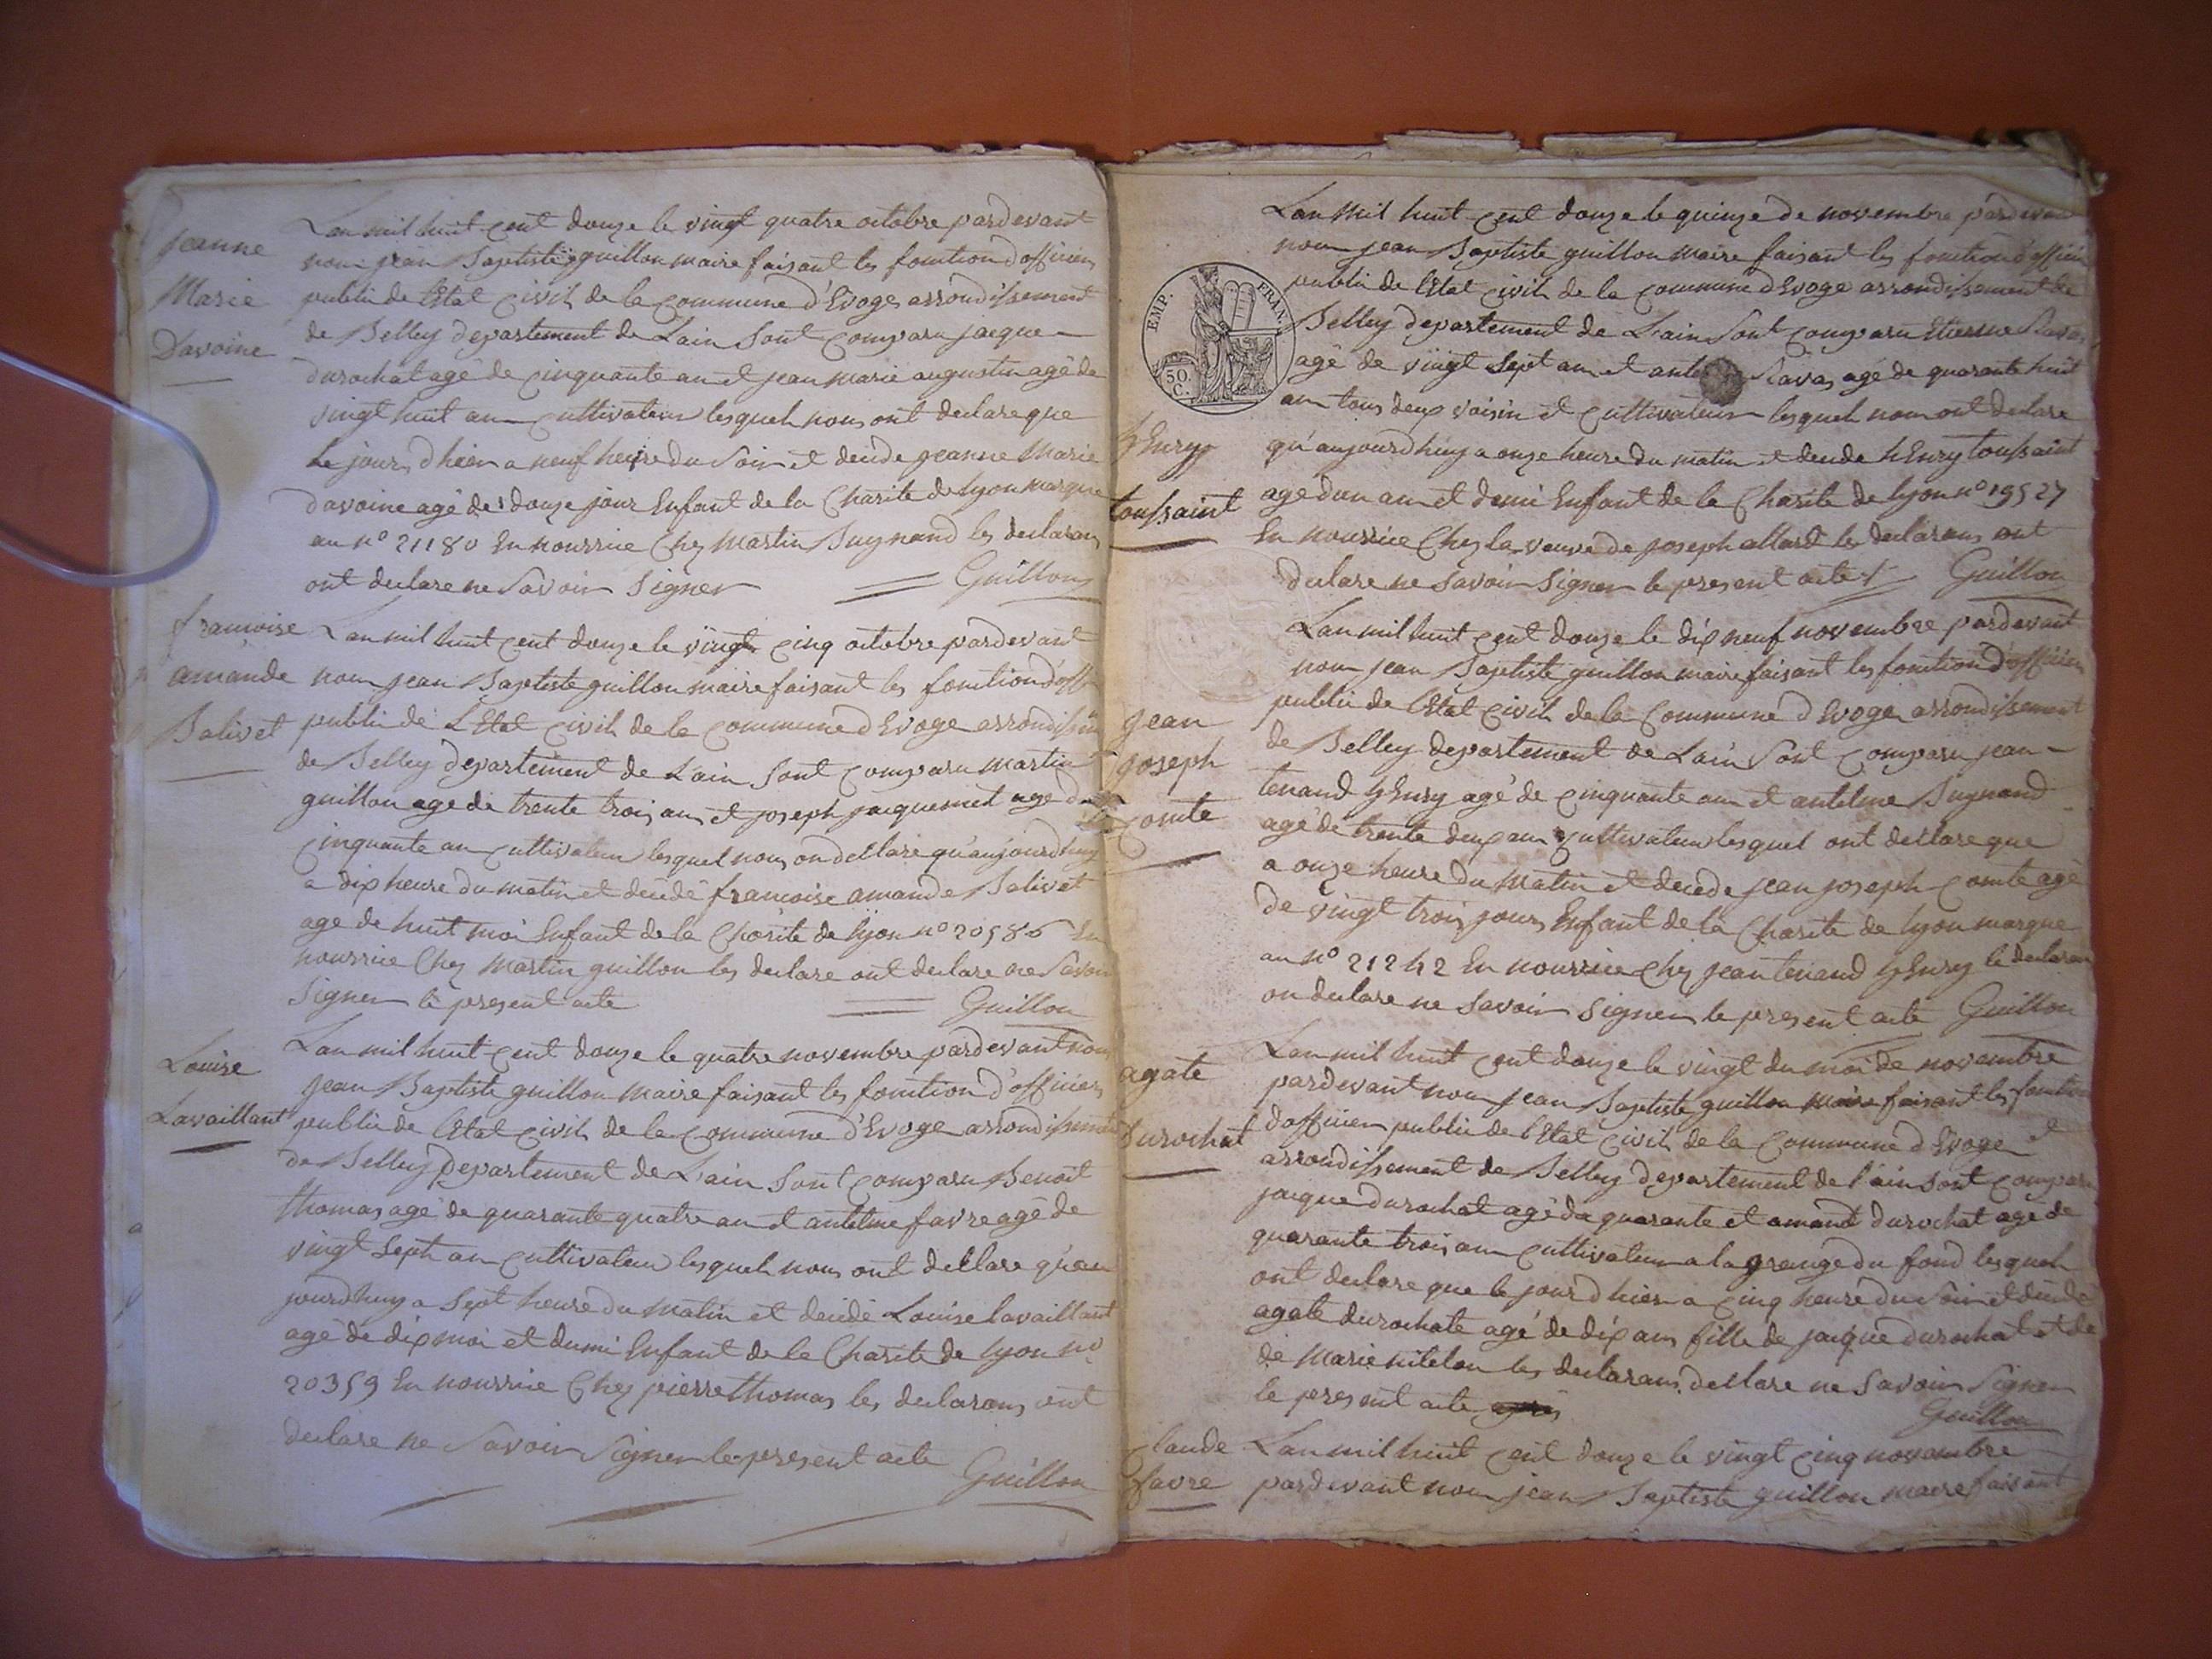 Jeanne
Marie
Davoine
Lan mil huit cent douze le vingt quatre octobre pardevant
nous jean Baptiste guillon maire faisant les fonction d'officier
public de l'Etat Civil de la Commune d'Evoges arrondissement
de Belley departement de Lain Sont Comparu jacque
durochat agé de Cinquante an et jean marie augustin agé de
vingt huit ans Cultivateurs lesquels nous ont declare que
le jours d'hier a neuf heure du Soir et decede jeanne Marie
davoine agé de douze jour Enfant de la Charite de lyon marque
au n° 21180 En nourrice Chez Martin Juynand les declarans
ont declare ne Savoir Signer
Guillon
francoise
amande
Balivet
Lan mil huit Cent douze le vingt Cinq octobre pardevant
nous jean Baptiste guillon maire faisant les fonction d'off
public de L'Etat Civil de la Commune d'Evoge arrondissem
de Belley departement de L'ain Sont Comparu Martin
guillon age de trente trois ans et joseph jacquemet age de
Cinquante an Cultivateur lesquel nous on declare qu'aujourdhuy
a dix heure du matin et decedé francoise amande Balivet
age de huit moi Enfant de la Charite de lyon n° 20586 En
nourrice Chez Martin guillon les declare ont declare ne Savoir
Signer le present acte
Guillon
Louise
Lavaillant
Lan mil huit Cent douze le quatre novembre pardevant nous
jean Baptiste guillon Maire faisant les fonction d'officier
public de l'Etat Civil de la Commune d'Evoge arrondissement
de Belley departement de L'ain Sont Comparu Benoit
thomas agé de quarante quatre an et antelme favre agé de
vingt Sept an Cultivateur lesquels nous ont declare qu'au
jourdhuy a Sept heure du Matin et decedé Louise lavaillant
agé de dix moi et dumi Enfant de la Charite de lyon n°
20359 En nourrice Chez pierre thomas les declarans ont
declare ne Savoir Signer le present acte
Guillon
EMP. FRAN.
50 C.
hEnry
toussaint
Lan Mil huit Cent douze le quinze de novembre pardevant
nous jean Baptiste guillon maire faisant les fonction d'officier
public de l'Etat Civil de la Commune d'Evoge arrondissement de
Belley departement de L'ain Sont Comparu Etienne Ravas
agé de vingt Sept an et Ravas agé de quarante huit
an tous deux voisin et Cultivateurs lesquels nous ont declare
qu'aujourdhuy a onze heure du matin et decede hEnry toussaint
agé d'un an et demi Enfant de la Charite de lyon n° 19527
En nourrice Chez la veuve de joseph allard les declarans ont
declare ne Savoir Signer le present acte
Guillon
jean
joseph
Comte
Lan mil huit Cent douze le dix neuf novembre pardevant
nous jean Baptiste guillon maire faisant les fonction d'officier
public de l'Etat Civil de la Commune d'Evoge arrondissement
de Belley departement de Lain Sont Comparu jean
tenand hEnry agé de Cinquante an et antelme Juynand
agé de trente deux an Cultivateur lesquel ont declare que
a onze heure du Matin et decede jean joseph Comte agé
de vingt trois jours Enfant de la Charite de lyon marque
au n° 21242 En nourrice Chez jean tenand hEnry le declarans
on declare ne Savoir Signer le present acte Guillon
agate
Durochat
Lan mil huit Cent douze le vingt du moi de novembre
pardevant nous jean Baptiste guillon maire faisant les fonction
d'officier public de l'Etat Civil de la Commune d'Evoge et
arrondissement de Belley departement de l'ain Sont Comparu
jacque durochat agé de quarante et amand durochat age de
quarante trois an Cultivateur a la grange du fond lesquels
ont declare que le jour d'hier a Cinq heure du Soir et decede
agate durochate agé de dix ans fille de jacque durochat et de
de Marie les declarans declare ne Savoir Signer
le present acte
Guillon
Claude
favre
Lan mil huit Cent douze le vingt Cinq novembre
pardevant nous jean Baptiste guillon maire faisant